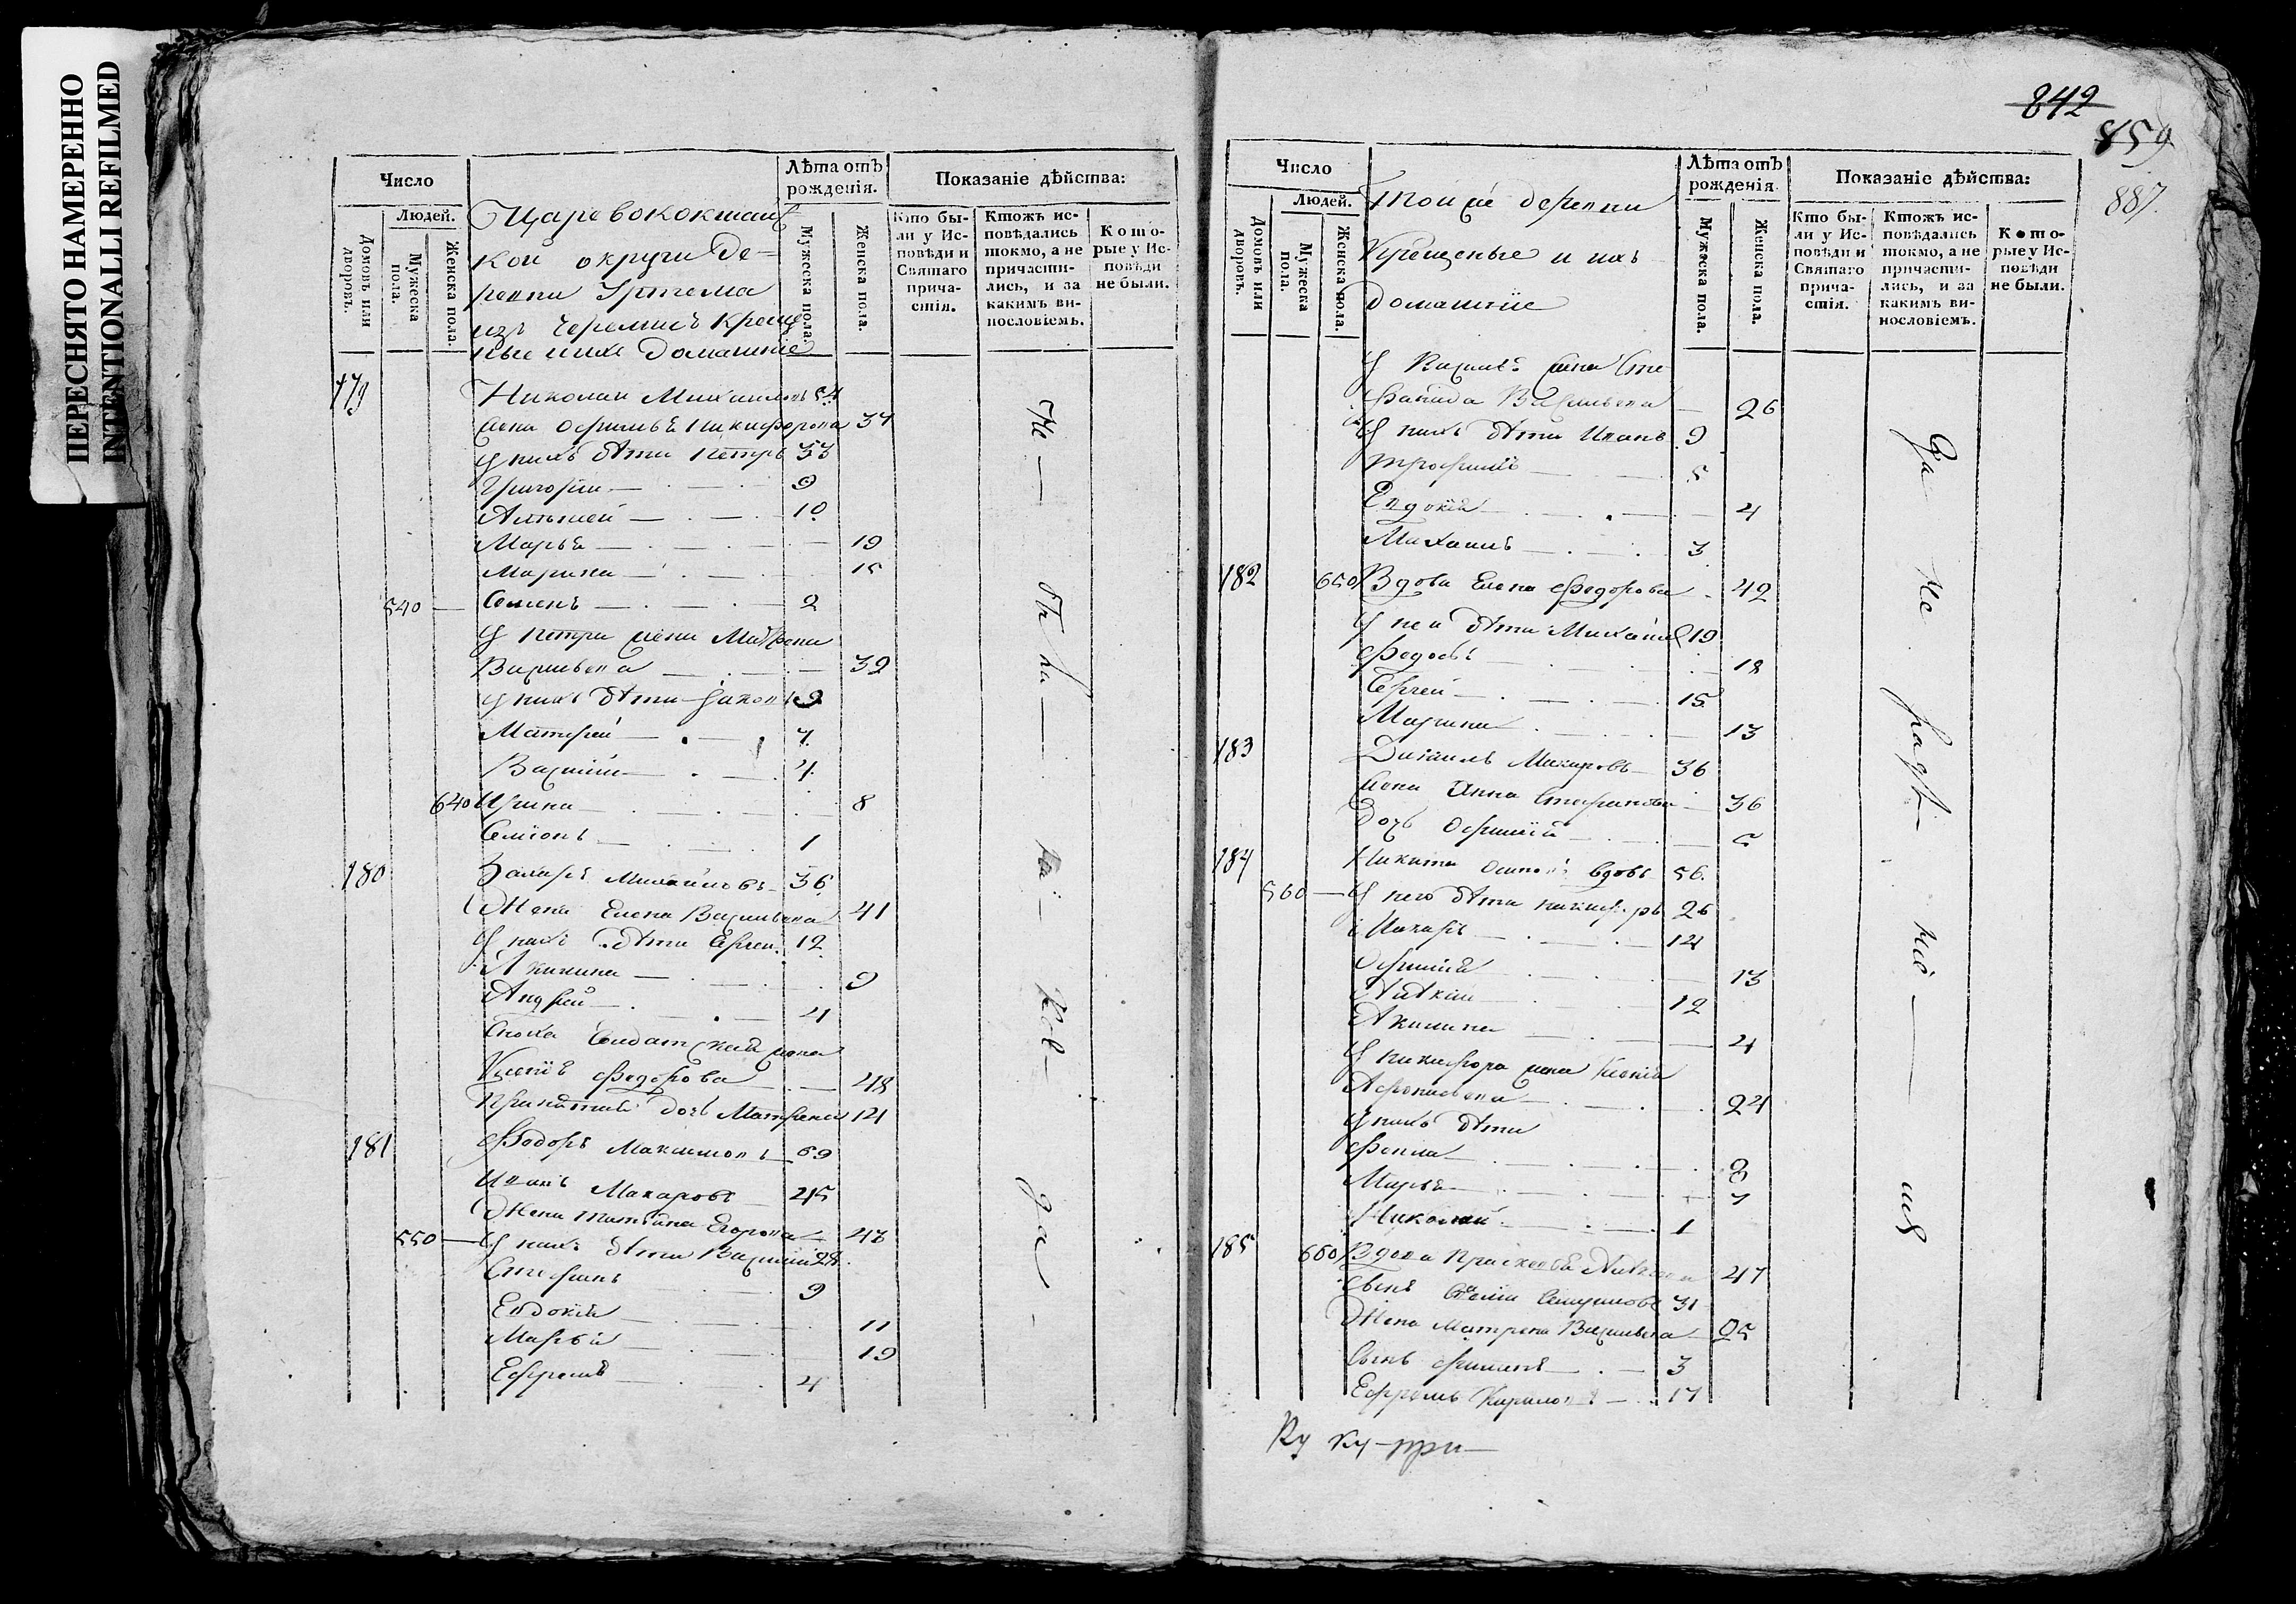 ПЕРЕСНЯТО НАМЕРЕННО
INTENTIONALLI REFILMED
Число
Людей.
Домовъ или дворовъ.
Мужеска пола.
Женска пола.
Царевококшаис
кой округи де=
ревни
изъ черемисъ креще
ные ихъ домашніе
Лѣта отъ рожденія.
Мужеска пола.
Женска пола.
Показаніе дѣйства:
Кто бы-
ли у Ис-
повѣди и
Святаго
прича-
стія.
Ктожъ ис-
повѣдались
токмо, а не
причасти-
лись, и за
какимъ ви-
нословіемъ.
Кото-
рые у Ис-
повѣди
не были.
179 Николай Михайловъ 54
жена Никифорова 37
у нихъ дѣти Петръ 33
Григорій 9
Алексей 10
Марья 19
Марина 15
540 Семенъ 2
у Петра жена Матрена
Васильева 32
у нихъ дѣти 9
Матфей 7
Василій 4
640 Ирина 8
Семіонъ 1
180 Захаръ Михайловъ 36
Жена Елена Васильева 41
у нихъ дѣти Сергеи 12
Акилина 9
Андрей 4
Сноха Солдатская жена
Федорова 48
дочь Матрена 14
181 Федоръ Максимовъ 69
Иванъ Макаровъ 45
Жена Татьяна Егорова 43
550 у нихъ дѣти Василій 28
Стефанъ 9
Евдокія 11
Марья 19
Ефремъ 4
842
859
887
Число
Людей.
Домовъ или дворовъ.
Мужеска пола.
Женска пола.
Тои же деревни
Крещеные и ихъ
домашніе
Лѣта отъ рожденія.
Мужеска пола.
Женска пола.
Показаніе дѣйства:
Кто бы-
ли у Ис-
повѣди и
Святаго
прича-
стія.
Ктожъ ис-
повѣдались
токмо, а не
причасти-
лись, и за
какимъ ви-
нословіемъ.
Кото-
рые у Ис-
повѣди
не были.
У жена Сте
фанида Васильева 26
У нихъ дѣти Иванъ 9
Трофимъ 5
Евдокія 4
Михаилъ 3
182 650 Вдова Елена Федорова 42
У неи дѣти Михаилъ 19
Федосья 18
Сергей 15
Марина 13
183 Даниилъ Макаровъ 36
жена Анна Стефанова 36
дочь 5
184 Никита вдовъ 56
560 У него дѣти Никифоръ 26
Макаръ 14
13
12
Акилина 4
У Никифора жена Ксенія
24
у нихъ дѣти
8
Марья 7
Николай 1
185 660 Вдова Прасковья 47
сынъ 31
Жена Матрена Васильева 25
Сынъ 3
Ефремъ Кириловъ 17